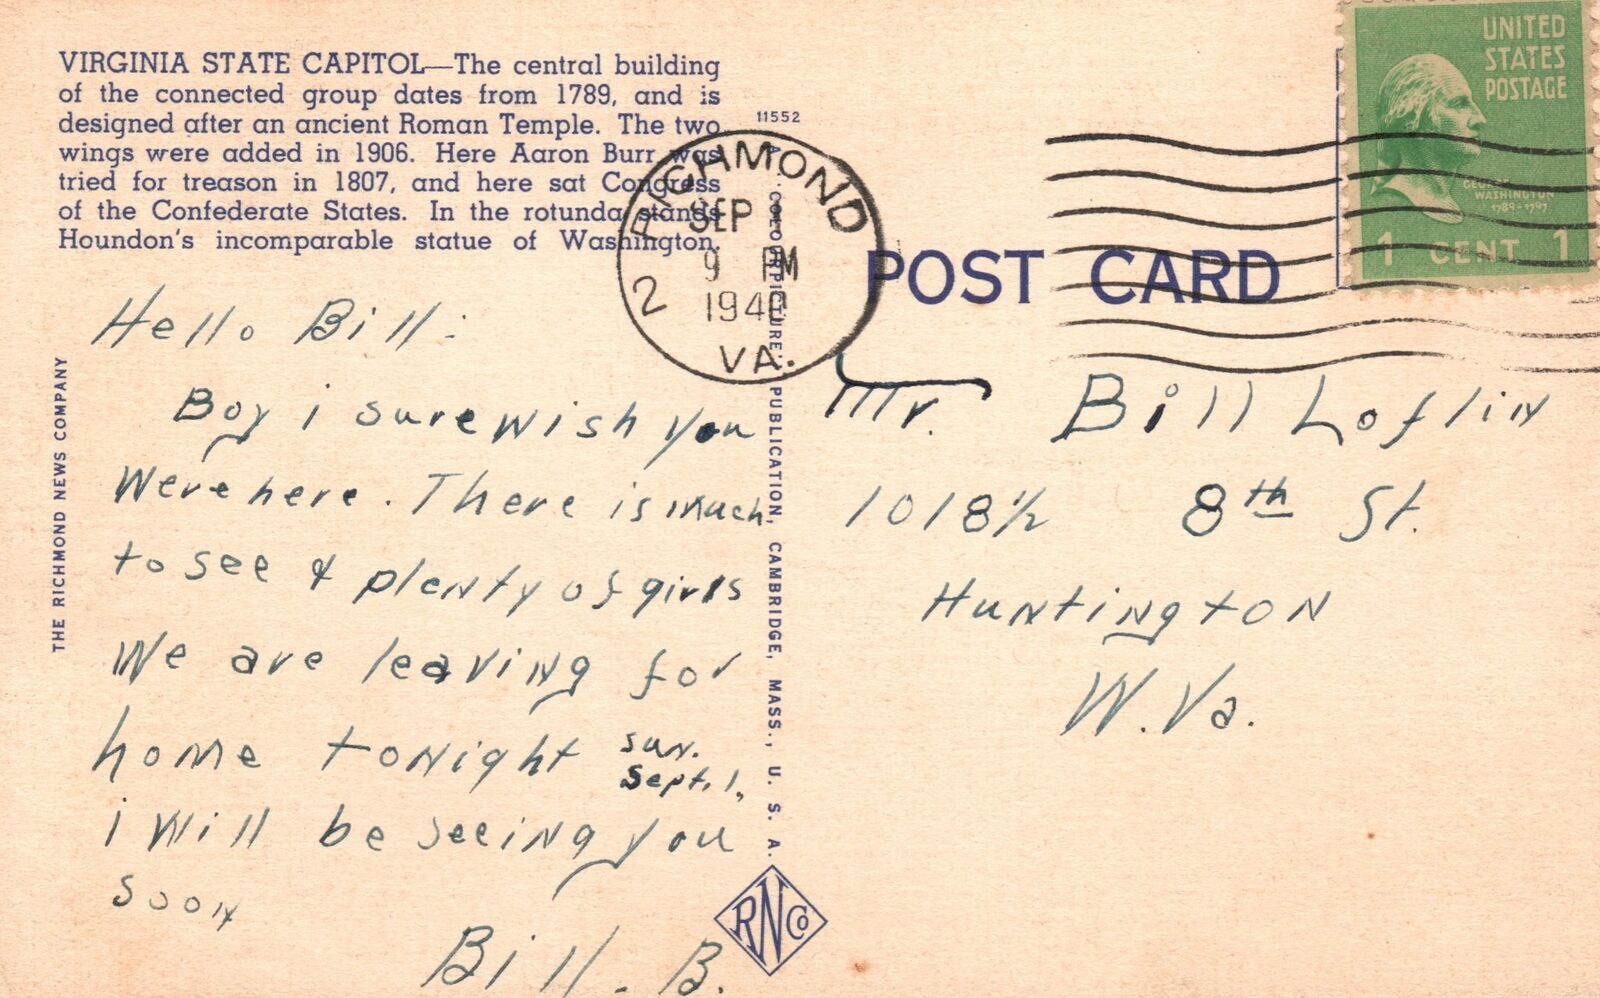 VIRGINIA STATE CAPITOL—The central building
of the connected group dates from 1789, and is
designed after an ancient Roman Temple. The two
wings were added in 1906. Here Aaron Burr was
tried for treason in 1807, and here sat Congress
of the Confederate States. In the rotunda stands
Houndon's incomparable statue of Washington.
11552
RICHMOND
SEP 1
9 PM
1940
2
VA.
UNITED
STATES
POSTAGE
GEORGE
WASHINGTON
1789-1797
1 CENT 1
POST CARD
THE RICHMOND NEWS COMPANY
Hello Bill:
Boy i sure wish you
Were here. There is much
to see & plenty of girls
We are leaving for
home tonight sun.
Sept. 1,
i will be seeing you
soon
Bill. B.
"COLOURPICTURE" PUBLICATION, CAMBRIDGE, MASS., U. S. A.
RNCo
Mr. Bill Loflin
1018½ 8th St.
Huntington
W. Va.